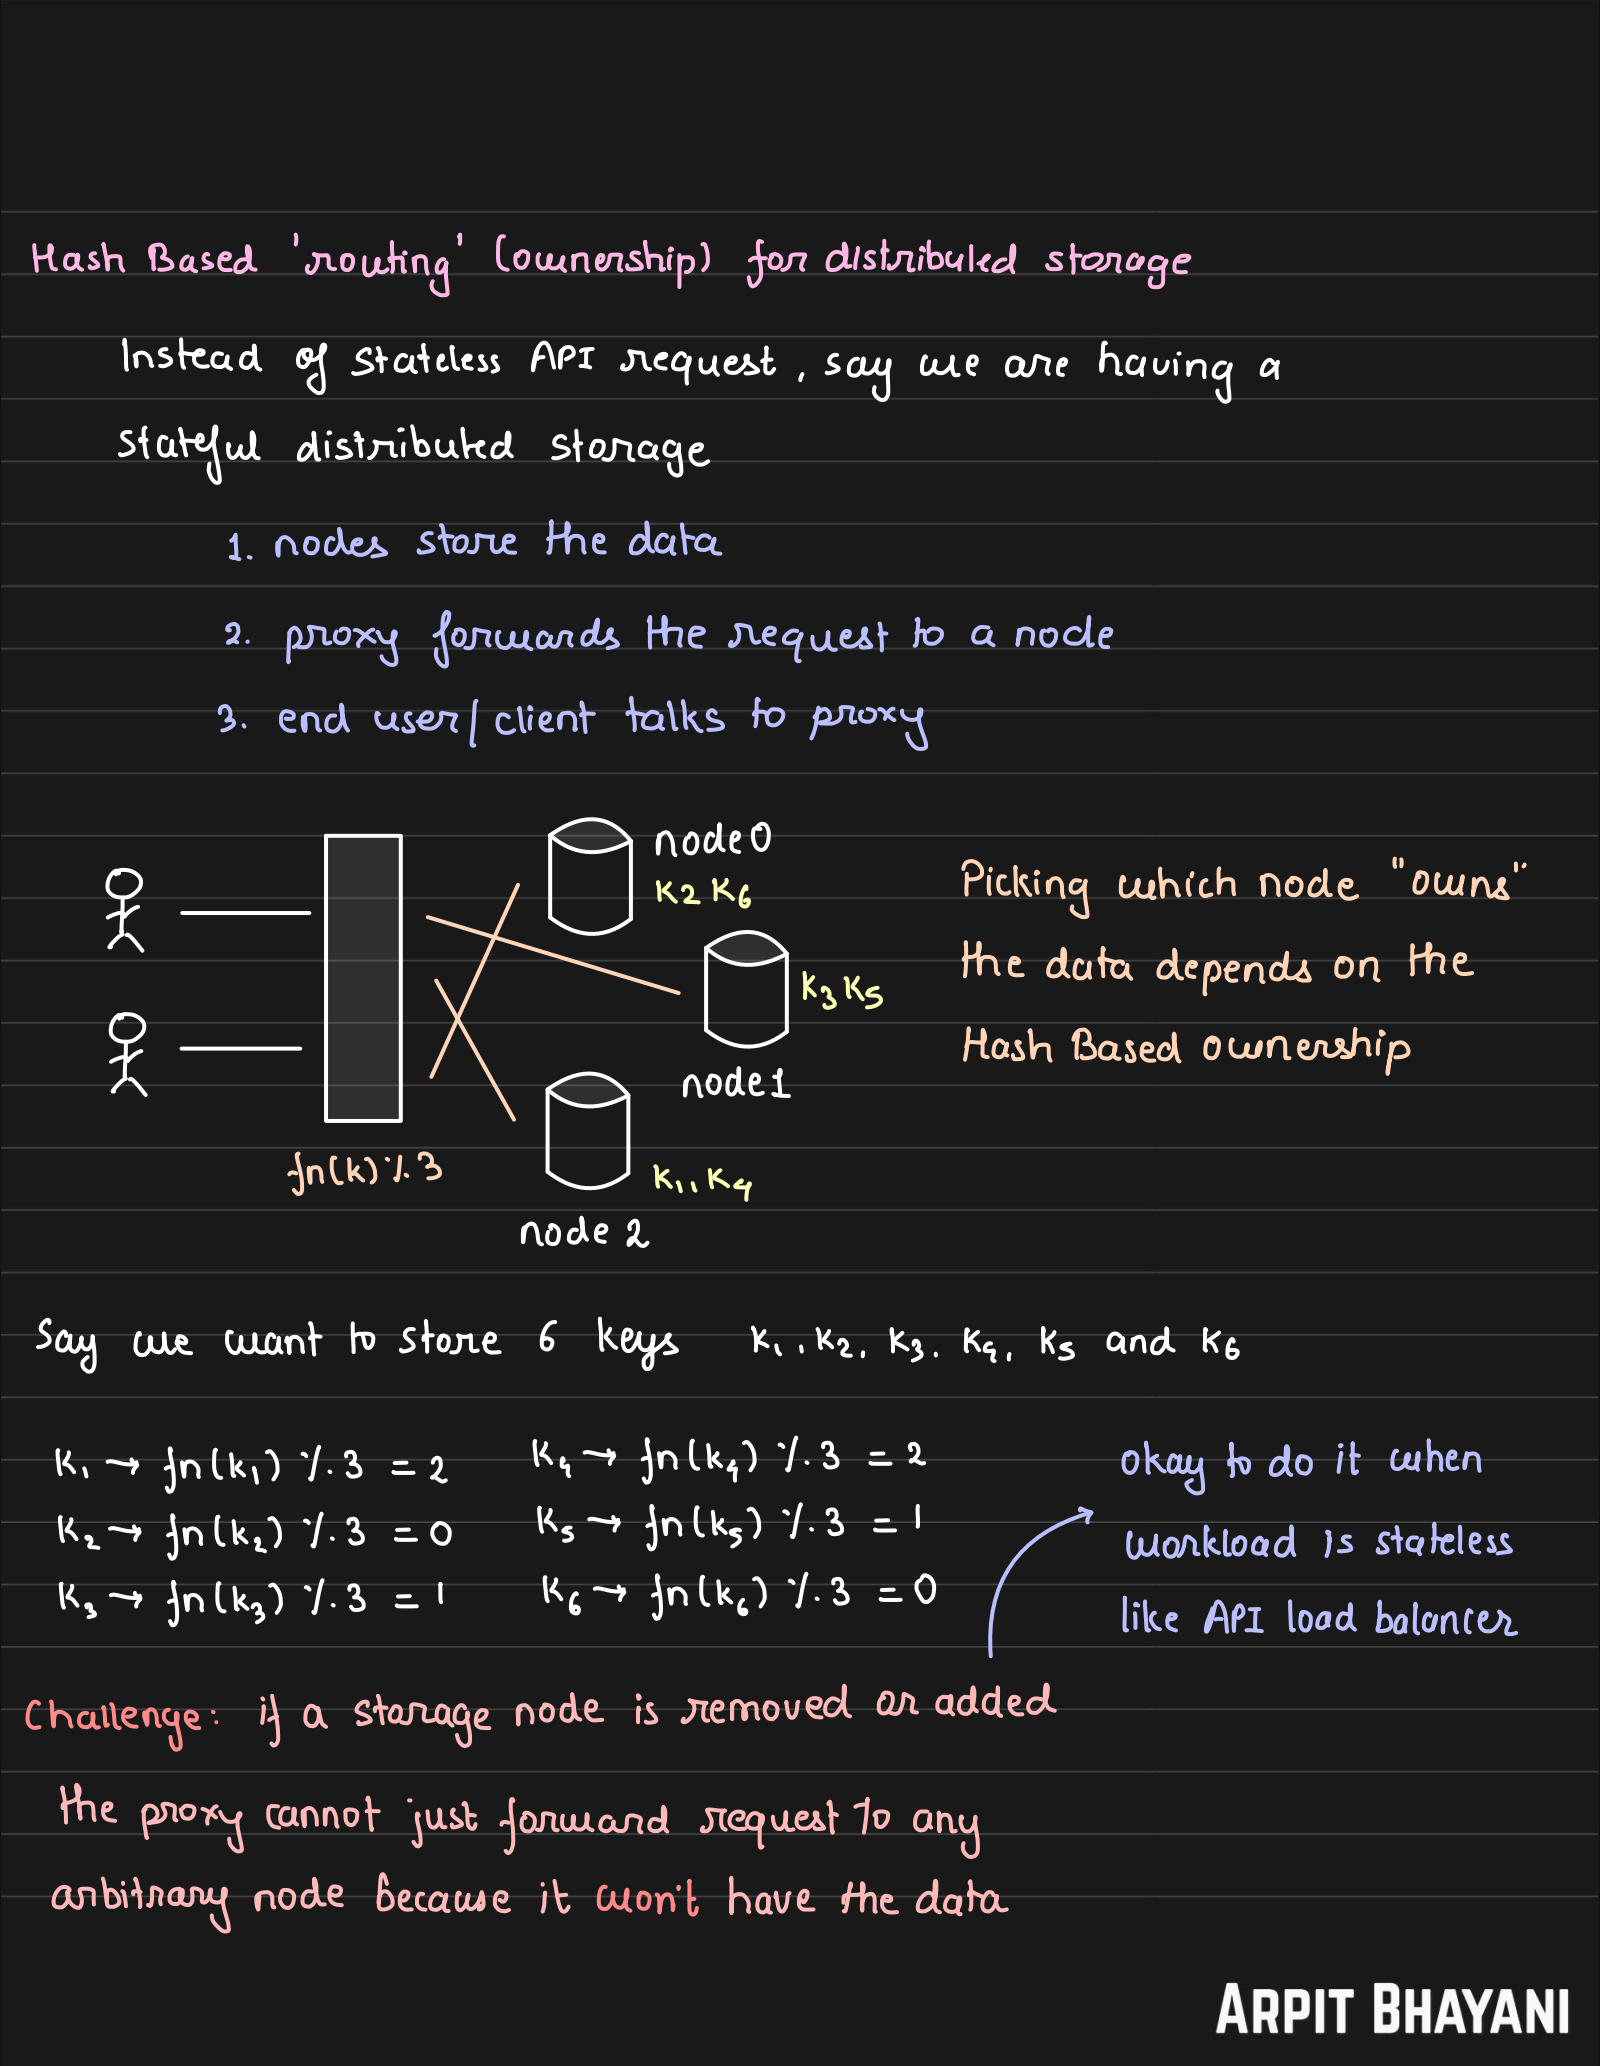 Hash Based 'routing' (ownership) for distributed storage
Instead of stateless API request, say we are having a
stateful distributed storage
1. nodes store the data
2. proxy forwards the request to a node
3. end user/client talks to proxy
node 0
K2 K6
K3 K5
node 1
fn(k) % 3
K1, K4
node 2
Picking which node "owns"
the data depends on the
Hash Based ownership
Say we want to store 6 keys K1, K2, K3, K4, K5 and K6
K1 → fn(k1) % 3 = 2
K2 → fn(k2) % 3 = 0
K3 → fn(k3) % 3 = 1
K4 → fn(k4) % 3 = 2
K5 → fn(k5) % 3 = 1
K6 → fn(k6) % 3 = 0
okay to do it when
workload is stateless
like API load balancer
Challenge: if a storage node is removed or added
the proxy cannot just forward request to any
arbitrary node because it won't have the data
ARPIT BHAYANI